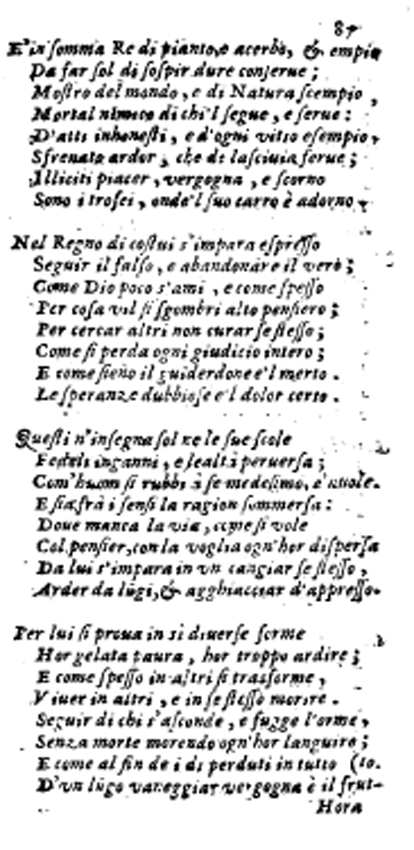 87
E' in somma Re di pianto, e acerbo, & empio
Da far sol di sospir dure conserue;
Mostro del mondo, e di Natura scempio,
Mortal nimico di chi'l segue, e serue:
D'atti inhonesti, e d'ogni vitio esempio,
Sfrenato ardor, che di lasciuia ferue;
Illiciti piacer, vergogna, e scorno
Sono i trofei, onde'l suo carro è adorno.
Nel Regno di costui s'impara espresso
Seguir il falso, e abandonare il vero;
Come Dio poco s'ami, e come spesso
Per cosa vil si sgombri alto pensiero;
Per cercar altri non curar se stesso;
Come si perda ogni giudicio intero;
E come sieno il guiderdone e'l merto.
Le speranze dubbiose e'l dolor certo.
Questi n'insegna sol ne le sue scole
Fedeli inganni, e lealtà peruersa;
Com'huom si rubbi à se medesimo, e inuole.
E sia frà i sensi la ragion sommersa:
Doue manca la via, come si vole
Col pensier, con la voglia ogn'hor dispersa
Da lui s'impara in vn cangiar se stesso,
Arder da lūgi, & agghiacciar d'appresso.
Per lui si proua in si diuerse forme
Hor gelata paura, hor troppo ardire;
E come spesso in altri si trasforme,
Viuer in altri, e in se stesso morire.
Seguir di chi s'asconde, e fugge l'orme,
Senza morte morendo ogn'hor languire;
E come al fin de i dì perduti in tutto (to.
D'vn lūgo vaneggiar vergogna è il frut-
Hora